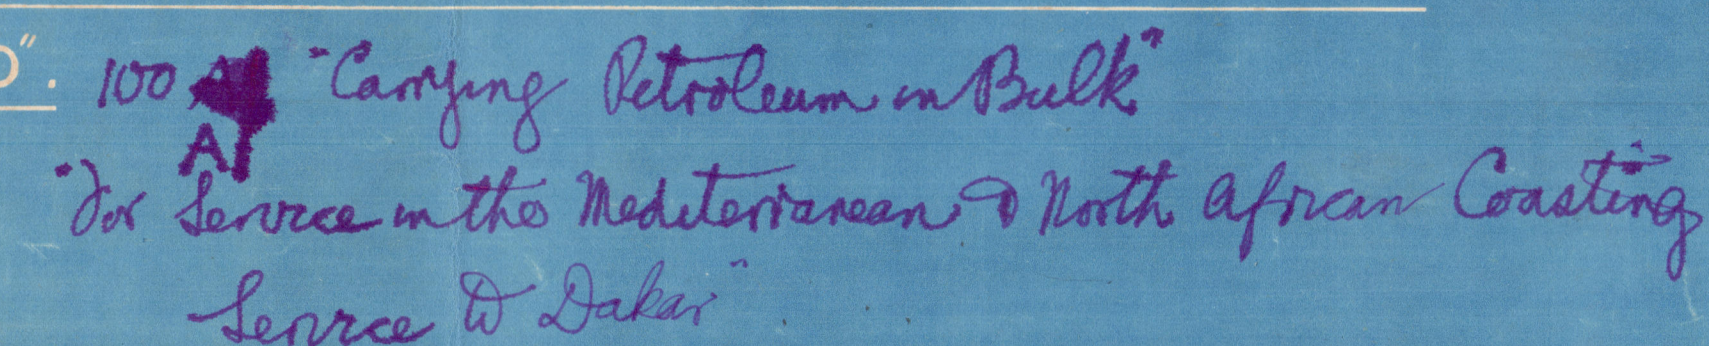 O". 100 A1 "Carrying Petroleum in Bulk"
"For Service in the Mediterranean & North African Coasting
Service to Dakar"